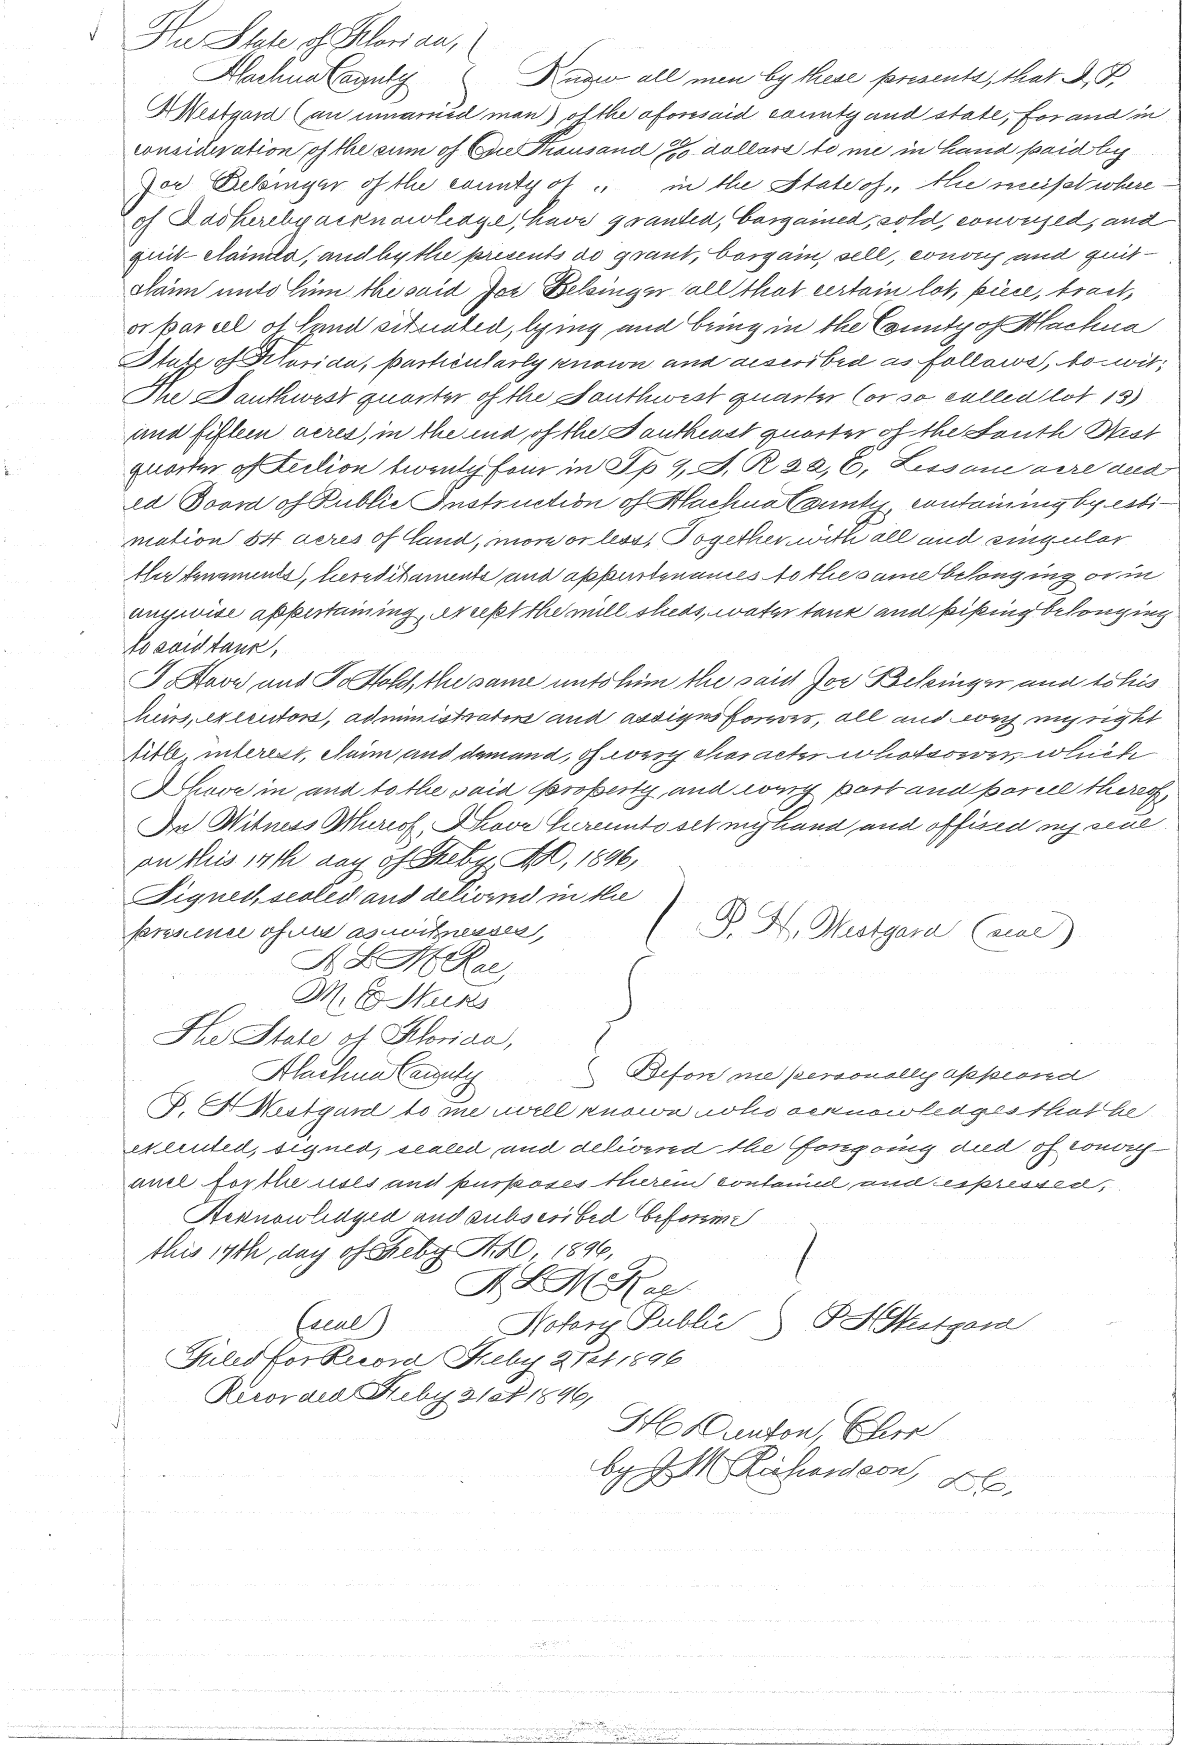 The State of Florida,
Alachua County Know all men by these presents, that I, P.
H Westgard (an unmarried man) of the aforesaid county and state, for and in
consideration of the sum of One Thousand dollars to me in hand paid by
Joe Belsinger of the county of " in the State of " the receipt where-
of I do hereby acknowledge, have granted, bargained, sold, conveyed, and
quit-claimed, and by the presents do grant, bargain, sell, convey and quit-
claim unto him the said Joe Belsinger all that certain lot, piece, tract,
or parcel of land situated, lying and being in the County of Alachua
State of Florida, particularly known and described as follows, to-wit;
The Southwest quarter of the Southwest quarter (or so called lot 13)
and fifteen acres, in the end of the Southeast quarter of the South West
quarter of Section twenty four in Tp 9, S, R 22, E, Less one acre deed
ed Board of Public Instruction of Alachua County, containing by esti-
mation 54 acres of land, more or less, Together with all and singular
the tenaments, hereditaments and appurtenances to the same belonging or in
anywise appertaining, except the mill sheds, water tank and piping belonging
to said tank,
To Have and To Hold, the same unto him the said Joe Belsinger and to his
heirs, executors, administrators and assigns forever, all and every my right
title, interest, claim and demand, of every character whatsoever, which
I have in and to the said property and every part and parcel thereof,
In Witness Whereof, I have hereunto set my hand and affixed my seal
on this 17th day of Feby, A.D, 1896,
Signed, sealed and delivered in the
presence of us as witnesses,
P. H, Westgard (seal)
A L McRae,
M. E Weeks
The State of Florida,
Alachua County Before me personally appeared
P. H Westgard to me well known who acknowledges that he
executed, signed, sealed and delivered the foregoing deed of convey-
ance for the uses and purposes therein contained and expressed,
Acknowledged and subscribed before me
this 17th, day of Feby A.D, 1896,
A L McRae
(seal) Notary Public P H Westgard
Filed for Record Feby 21st 1896
Recorded Feby 21st 1896,
Denton, Clerk
by J M Richardson, D C,